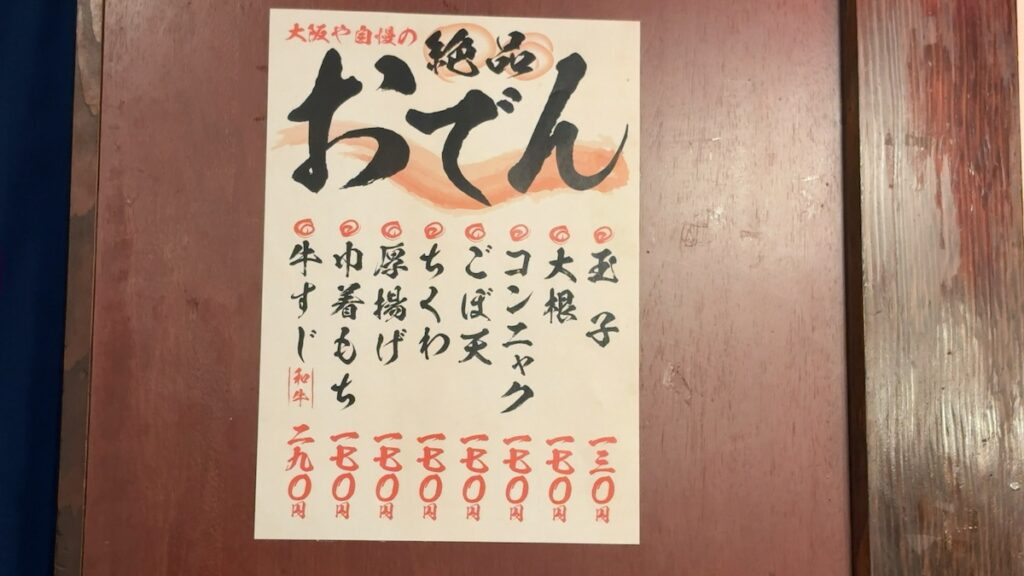 大阪や自慢の
絶品
おでん
玉子 一三〇円
大根 一七〇円
コンニャク 一七〇円
ごぼ天 一七〇円
ちくわ 一七〇円
厚揚げ 一七〇円
巾着もち 一七〇円
牛すじ 和牛 二九〇円